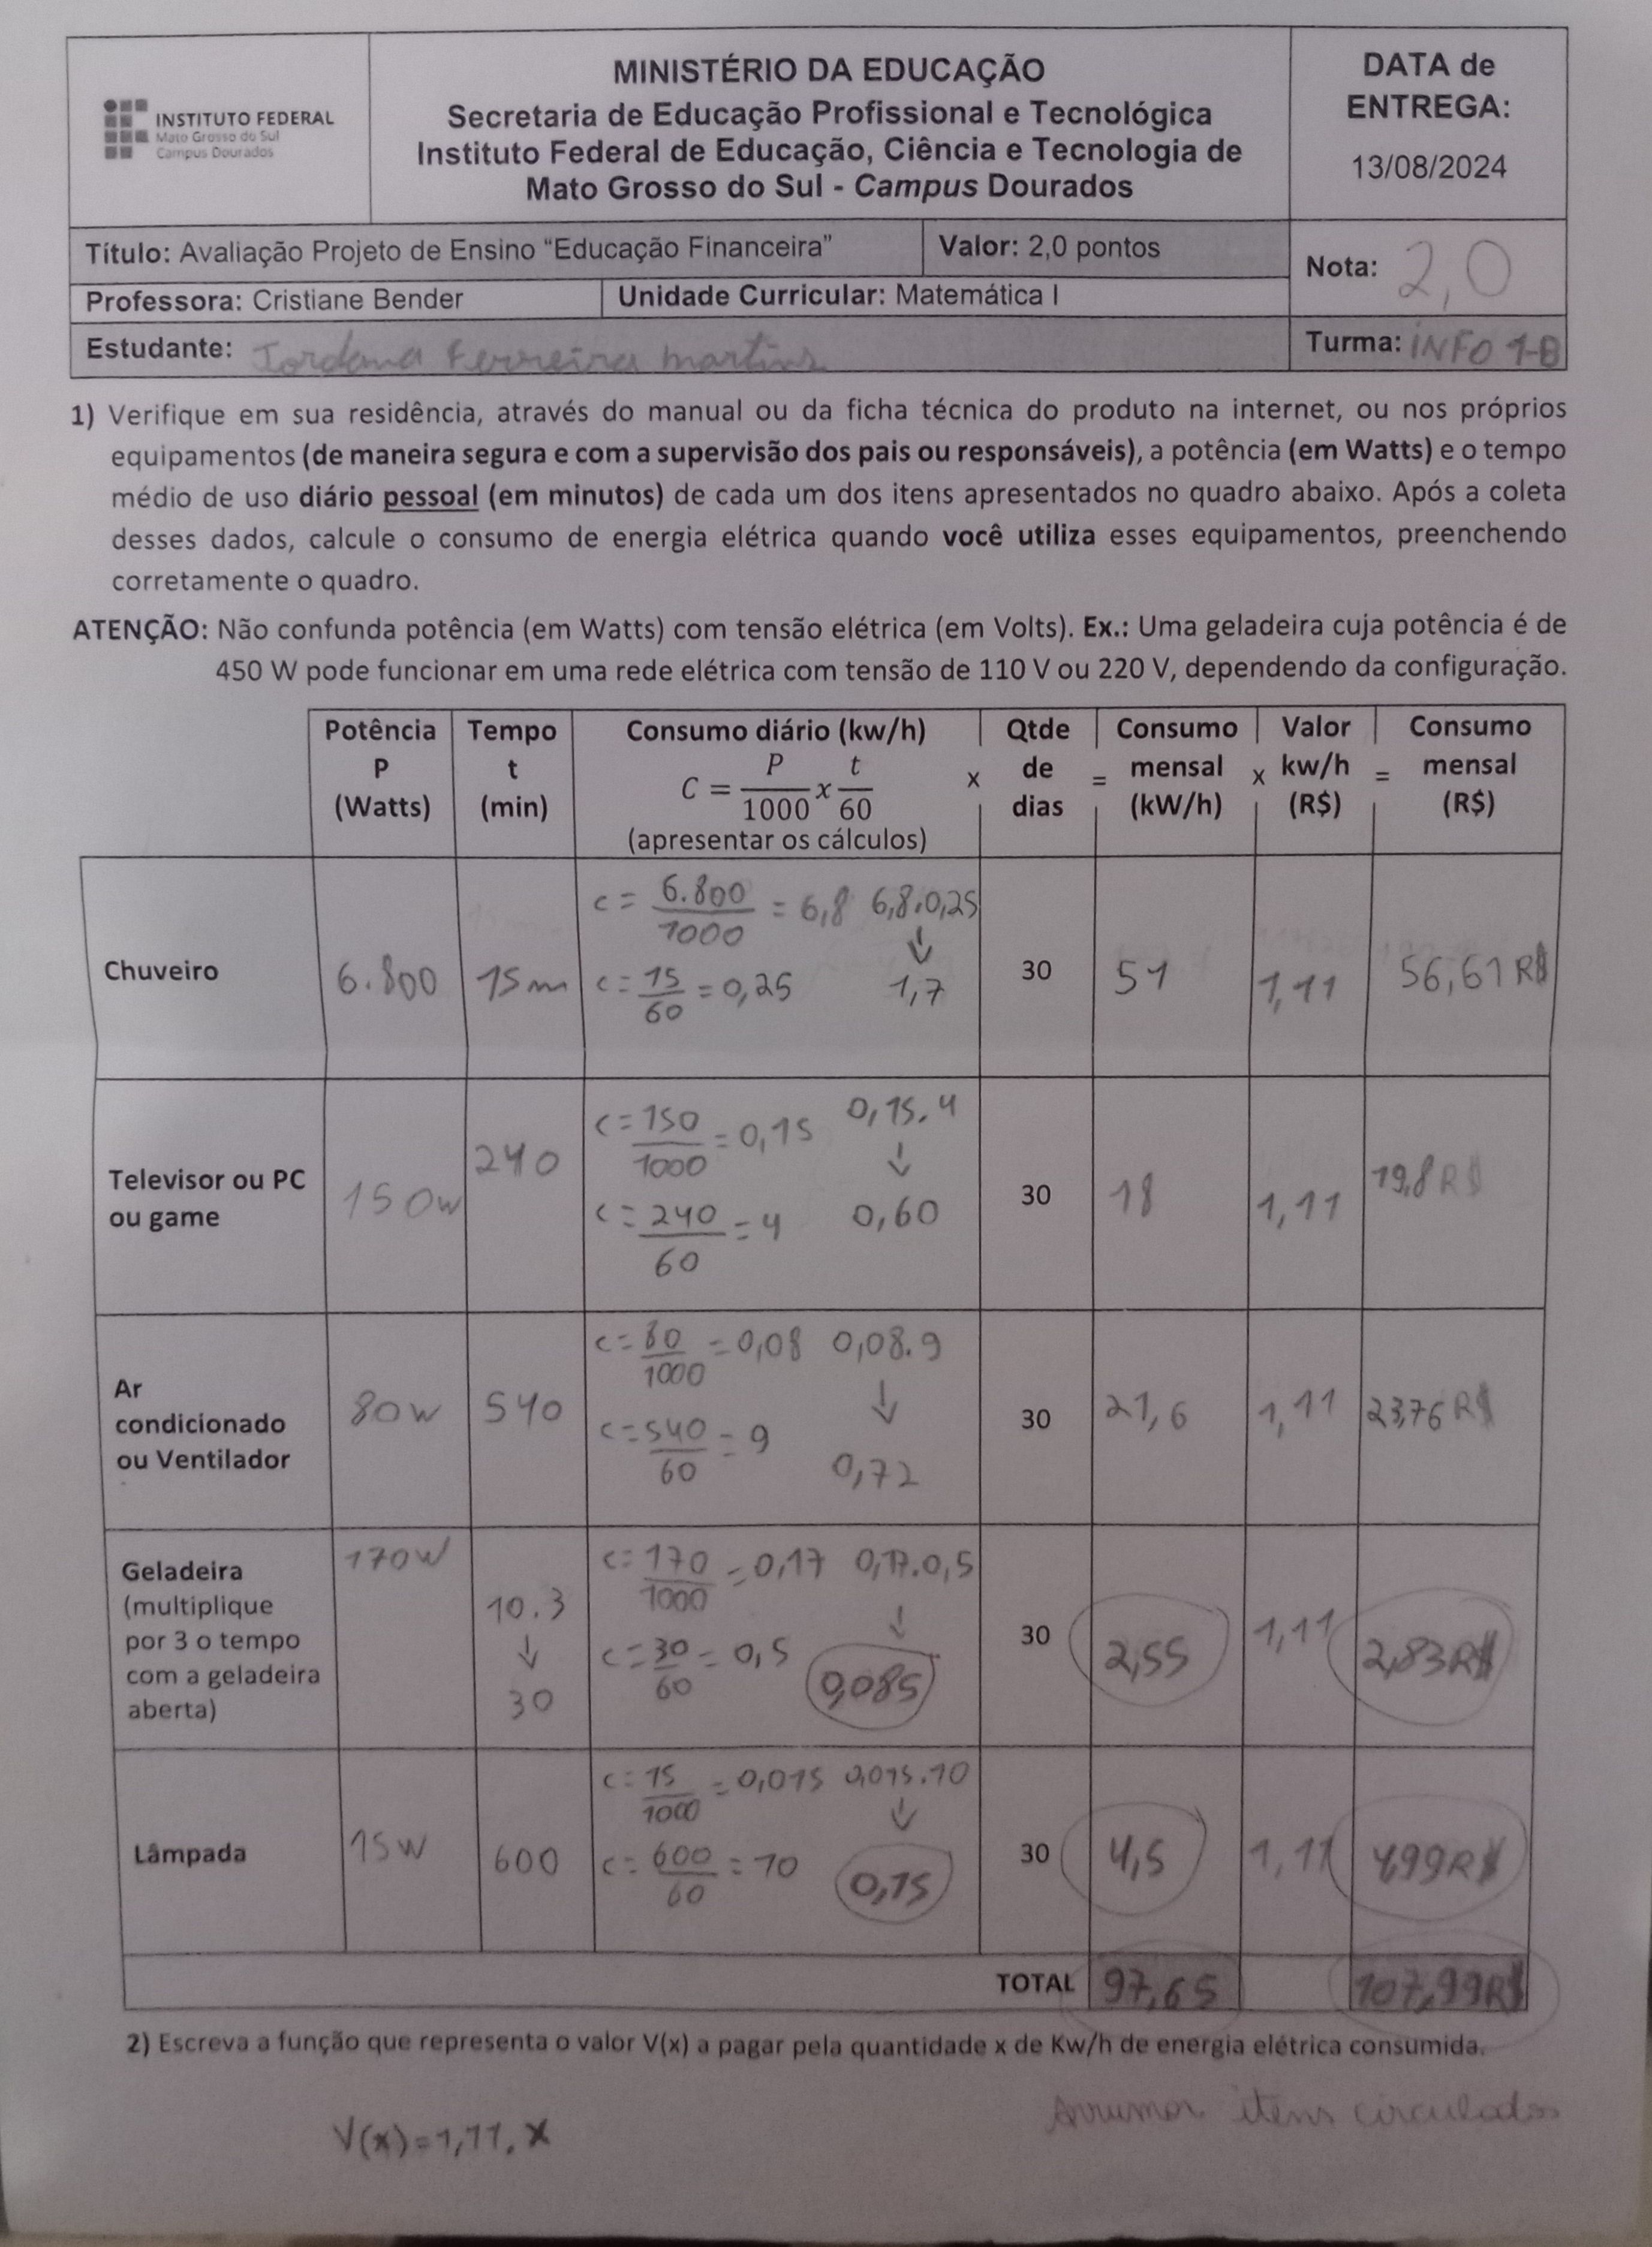 INSTITUTO FEDERAL
Mato Grosso do Sul
Campus Dourados
MINISTÉRIO DA EDUCAÇÃO
Secretaria de Educação Profissional e Tecnológica
Instituto Federal de Educação, Ciência e Tecnologia de
Mato Grosso do Sul - Campus Dourados
DATA de
ENTREGA:
13/08/2024
Título: Avaliação Projeto de Ensino “Educação Financeira”
Valor: 2,0 pontos
Nota: 2,0
Professora: Cristiane Bender
Unidade Curricular: Matemática I
Estudante: Jordana Ferreira martins
Turma: INFO 1-B
1) Verifique em sua residência, através do manual ou da ficha técnica do produto na internet, ou nos próprios
equipamentos (de maneira segura e com a supervisão dos pais ou responsáveis), a potência (em Watts) e o tempo
médio de uso diário pessoal (em minutos) de cada um dos itens apresentados no quadro abaixo. Após a coleta
desses dados, calcule o consumo de energia elétrica quando você utiliza esses equipamentos, preenchendo
corretamente o quadro.
ATENÇÃO: Não confunda potência (em Watts) com tensão elétrica (em Volts). Ex.: Uma geladeira cuja potência é de
450 W pode funcionar em uma rede elétrica com tensão de 110 V ou 220 V, dependendo da configuração.
Potência
P
(Watts)
Tempo
t
(min)
Consumo diário (kw/h)
C = P/1000 x t/60
(apresentar os cálculos)
x
Qtde
de
dias
=
Consumo
mensal
(kW/h)
x
Valor
kw/h
(R$)
=
Consumo
mensal
(R$)
Chuveiro
6.800
15m
c = 6.800/1000 = 6,8 6,8.0,25
↓
c = 15/60 = 0,25 1,7
30
51
1,11
56,61 R$
Televisor ou PC
ou game
150w
240
c = 150/1000 = 0,15 0,15.4
↓
c = 240/60 = 4 0,60
30
18
1,11
19,8 R$
Ar
condicionado
ou Ventilador
80w
540
c = 80/1000 = 0,08 0,08.9
↓
c = 540/60 = 9
0,72
30
21,6
1,11
23,76 R$
Geladeira
(multiplique
por 3 o tempo
com a geladeira
aberta)
170W
10.3
↓
30
c = 170/1000 = 0,17 0,17.0,5
↓
c = 30/60 = 0,5 0,085
30
2,55
1,11
2,83R$
Lâmpada
15W
600
c = 15/1000 = 0,015 0,015.10
↓
c = 600/60 = 10 0,15
30
4,5
1,11
4,99R$
TOTAL
97,65
107,99R$
2) Escreva a função que representa o valor V(x) a pagar pela quantidade x de Kw/h de energia elétrica consumida.
Arrumar itens circulados
V(x)=1,11.x